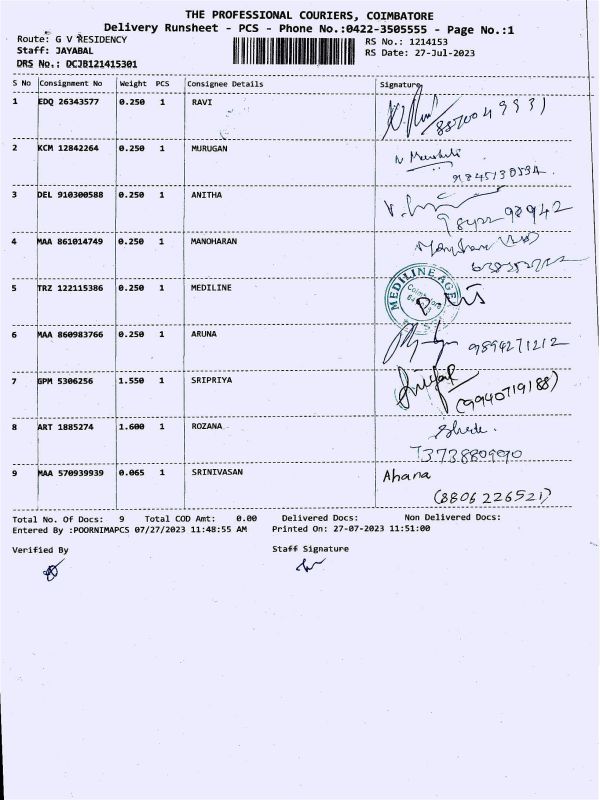 THE PROFESSIONAL COURIERS, COIMBATORE
Delivery Runsheet - PCS - Phone No.:0422-3505555 - Page No.:1
Route: G V RESIDENCY RS No.: 1214153
Staff: JAYABAL RS Date: 27-Jul-2023
DRS No.: DCJB121415301
S No Consignment No Weight PCS Consignee Details Signature
1 EDQ 26343577 0.250 1 RAVI
2 KCM 12842264 0.250 1 MURUGAN
3 DEL 910300588 0.250 1 ANITHA
4 MAA 861014749 0.250 1 MANOHARAN
5 TRZ 122115386 0.250 1 MEDILINE
MEDILINE AGE
6 MAA 860983766 0.250 1 ARUNA
9894271212
7 GPM 5306256 1.550 1 SRIPRIYA
(9940719188)
8 ART 1885274 1.600 1 ROZANA
7373880990
9 MAA 570939939 0.065 1 SRINIVASAN Ahana
(8806226521)
Total No. Of Docs: 9 Total COD Amt: 0.00 Delivered Docs: Non Delivered Docs:
Entered By :POORNIMAPCS 07/27/2023 11:48:55 AM Printed On: 27-07-2023 11:51:00
Verified By Staff Signature